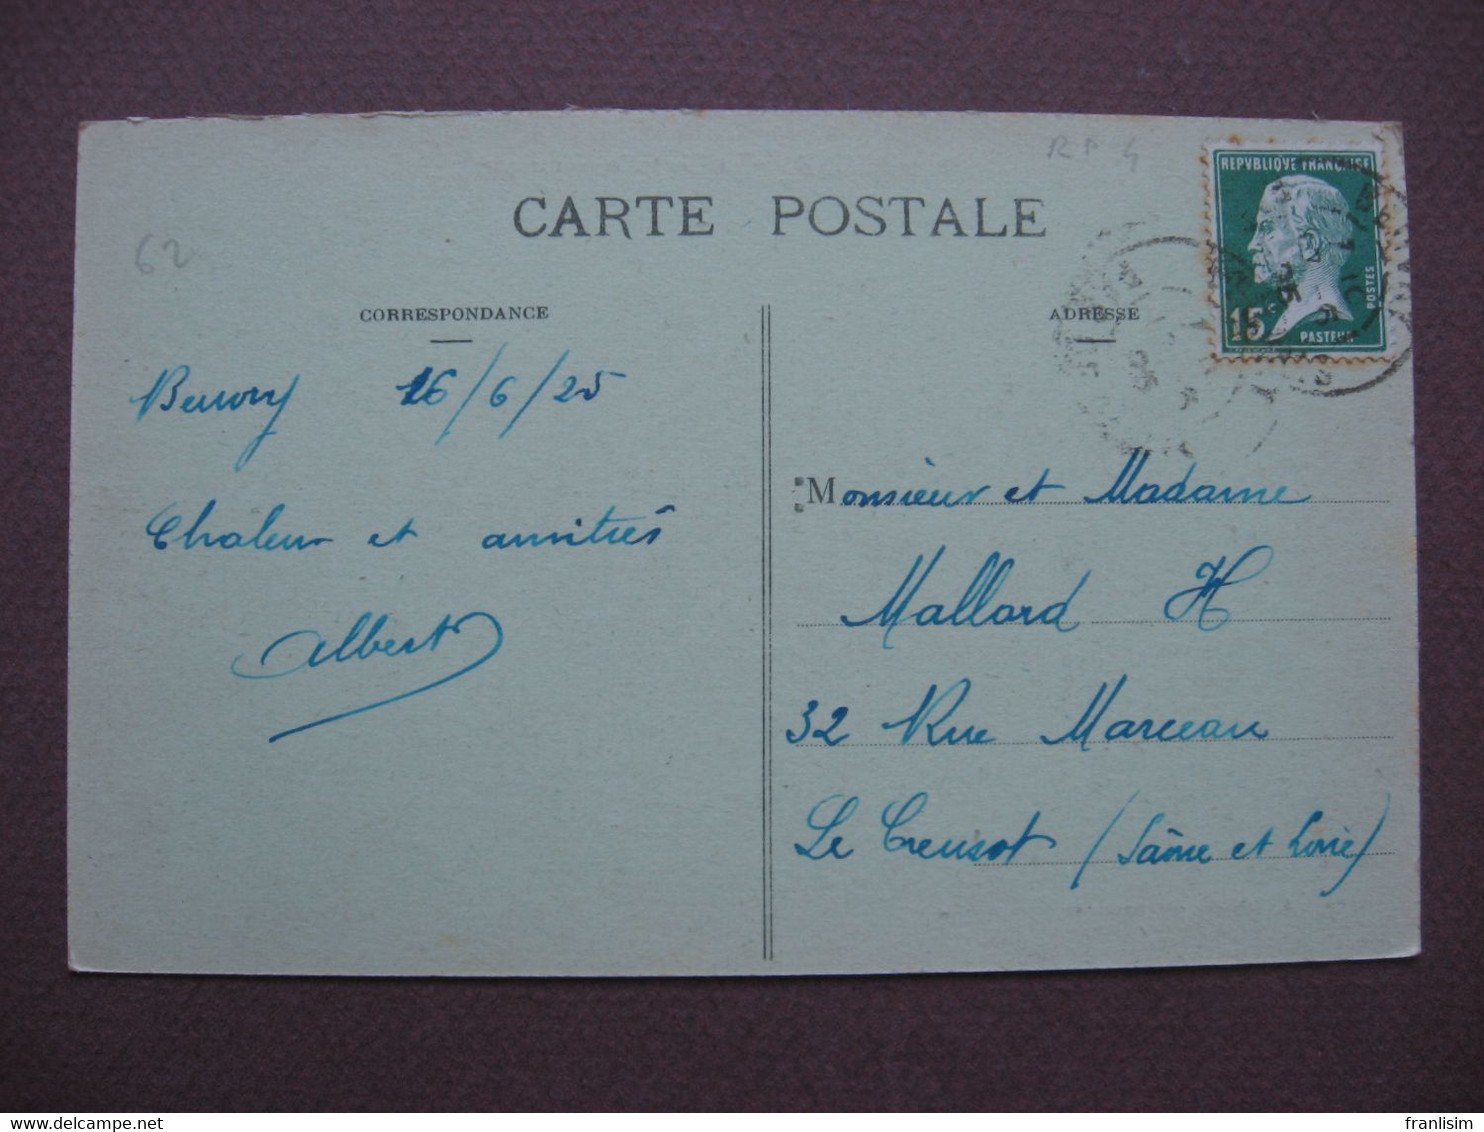 RP 4
CARTE POSTALE
REPVBLIQVE FRANCAISE
POSTES
15
PASTEUR
62
CORRESPONDANCE
Beuvry 16/6/25
Chaleur et amitiés
Albert
ADRESSE
Monsieur et Madame
Mallard H
32 Rue Marceau
Le Creusot (Saône et Loire)
franlisim